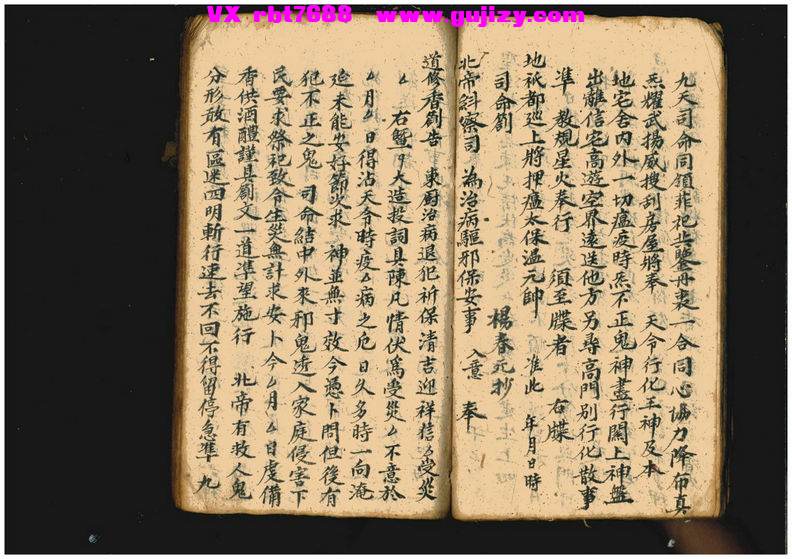 VX rbt7688 www.gujizy.com
九天司命同領非祀共鑒丹衷二合同心協力降布真
炁耀武揚威搜刮房屋將奉 天令行化王神及本
地宅舍内外一切瘟疫時炁不正鬼神盡行關上神盤
出離信宅高遊空界遠送他方另尋高門别行化散事
準 教規星火奉行 須至牒者 右牒
地祇都廵上將押瘟太保溫元帥 准此 年月日時
司命劄 楊春元抄
北帝糾察司 為治病驅邪保安事 入意 奉
道修香劄告 東厨治病退犯祈保清吉迎祥信厶受災
厶 右暫 大造投詞具陳凡情伏爲受災厶不意於
厶月厶日得沾天令時疫厶病之危日久多時一向淹
延未能安好節次求 神並無寸效今憑卜問但後有
犯不正之鬼 司命結中外來邪鬼透入家庭侵害下
民要求祭祀致令生災無計求安卜今厶月厶日虔備
香供酒醴謹具劄文一道準望施行 北帝有救人鬼
分形敢有區迷四明斬行速去不回不得留停急準 九